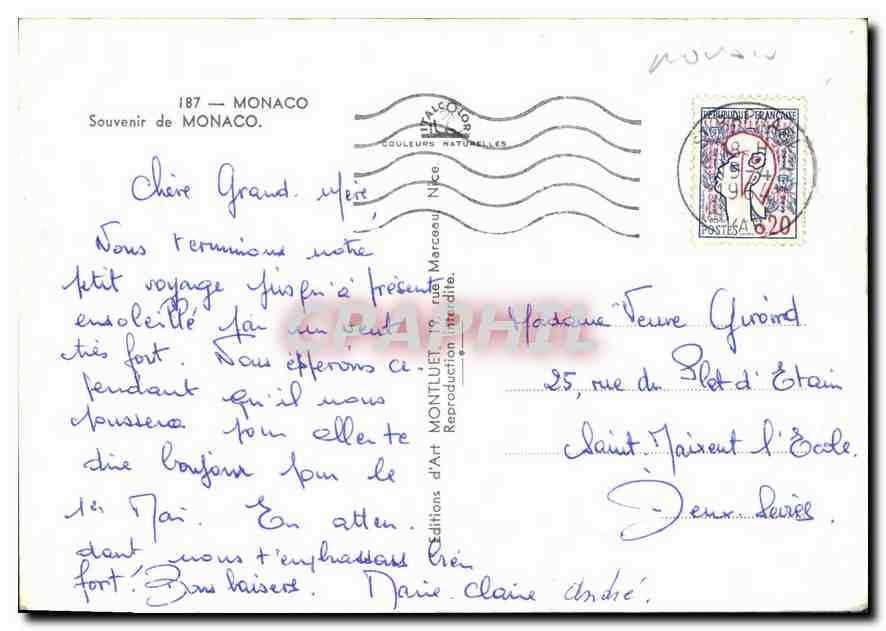 187 — MONACO
Souvenir de MONACO.
ITALCOLOR
COULEURS NATURELLES
REPUBLIQUE FRANÇAISE
POSTES
0,20
Chère Grand-Mère,
Nous terminons notre
petit voyage jusqu'à présent
ensoleillé par un vent
très fort. Nous espérons ce-
pendant qu'il nous
poussera pour aller te
dire bonjour pour le
1er Mai. En atten-
dant nous t'embrassons bien
fort! Bons baisers. Marie-Claire André.
Editions d'Art MONTLUET, 19, rue Marceau, Nice.
Reproduction interdite.
Madame Veuve Girard
25, rue du Plat d'Etain
Saint-Maixent l'Ecole.
Deux-Sèvres.
CPAPHIL